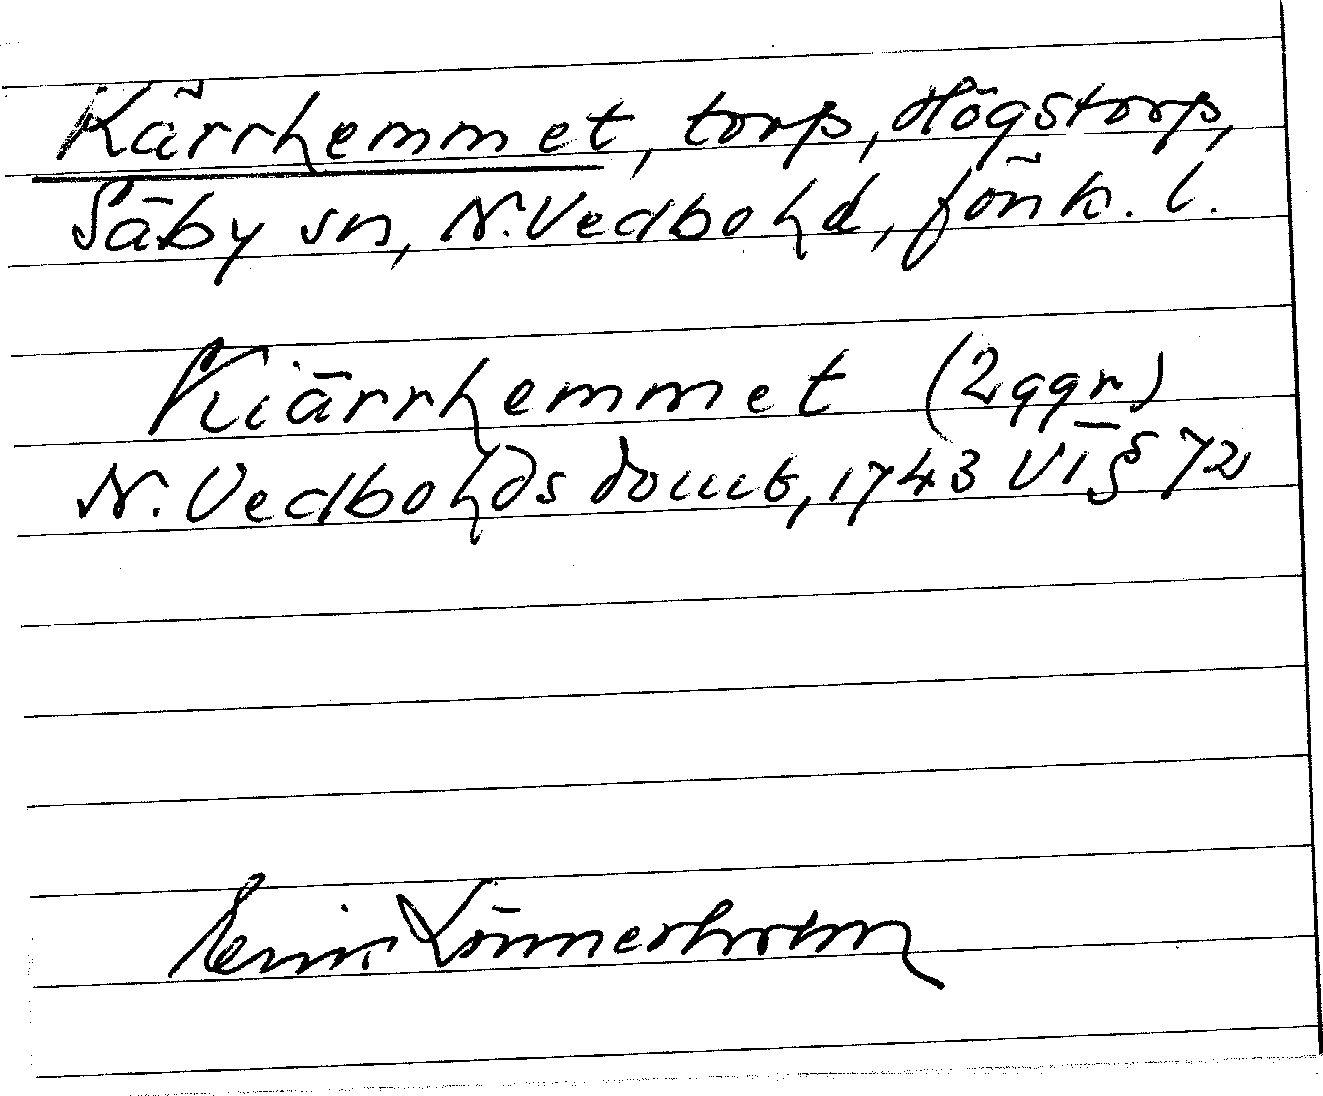 Kärrhemmet, torp, Högstorp,
Säby sn, N. Vedbo hd, Jönk. l.
Kiärrhemmet (2 ggr)
N. Vedbo hds domb, 1743 VT § 72
Lönnerholm